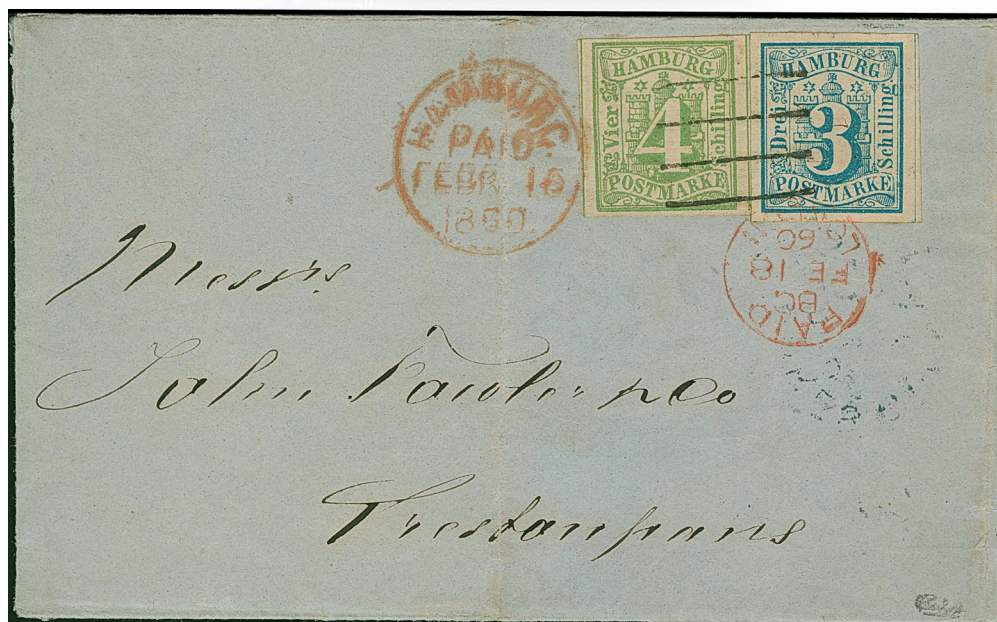 HAMBURG
PAID.
FEBR. 16
1860
HAMBURG
Vier
4
Schilling
POSTMARKE
HAMBURG
Drei
3
Schilling
POSTMARKE
60
FE 18
BC
PAID
Messrs
John Fowler & Co
Prestonpans